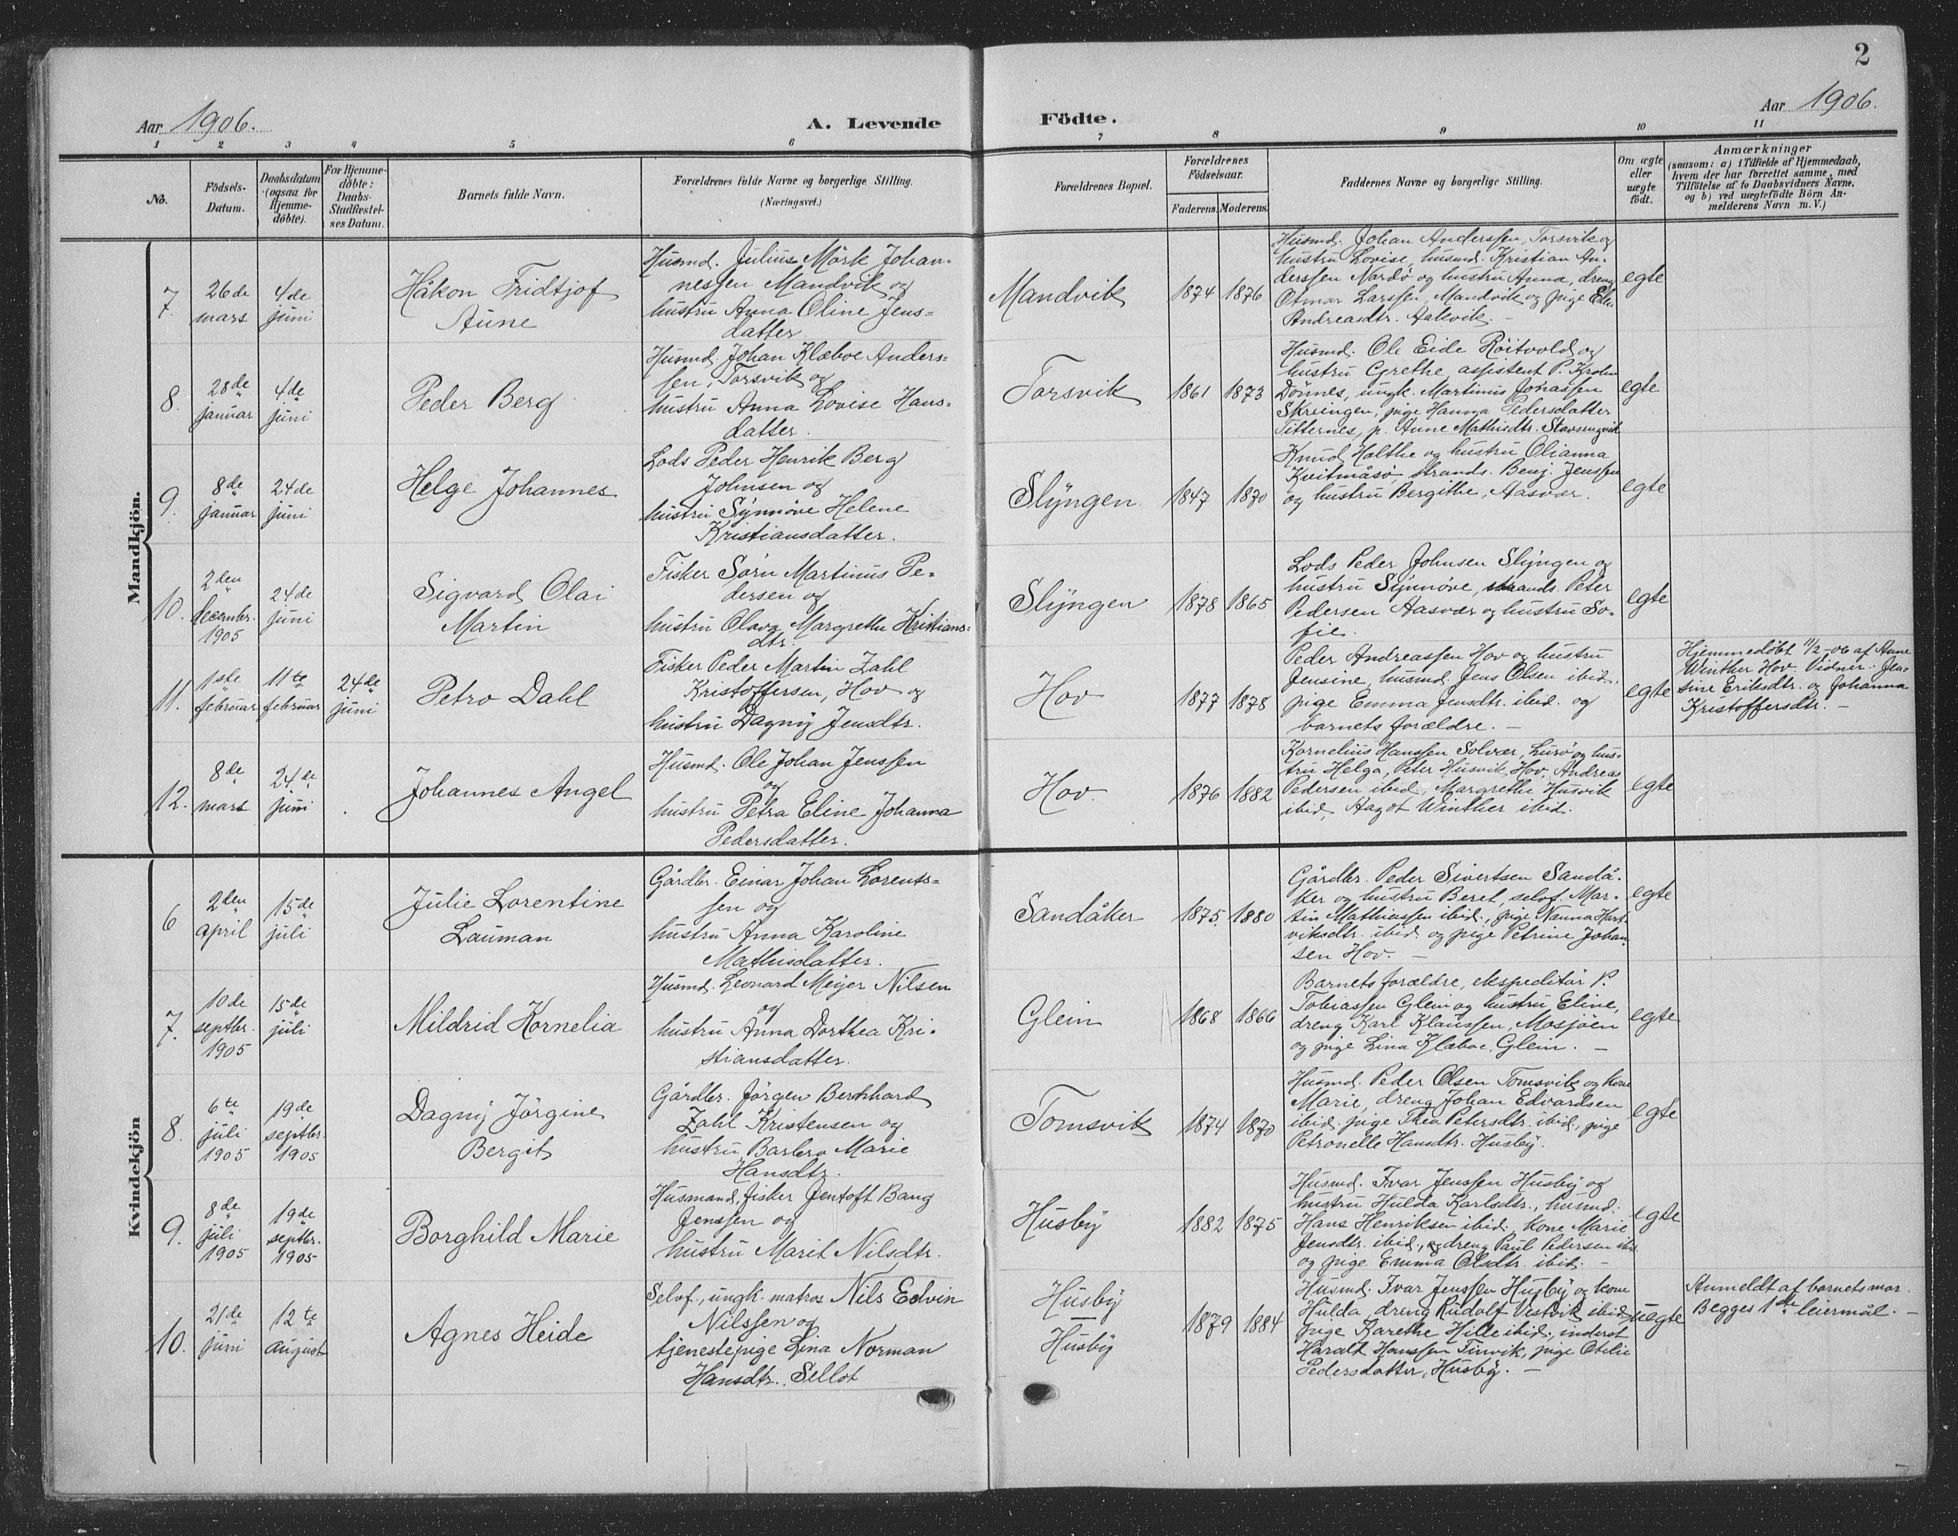 2
Aar 1906.
A. Levende
Födte.
Aar 1906.
1 2 3 4 5 6 7 8 9 10 11
No.
Födsels-
Datum.
Daabsdatum
(ogsaa for
Hjemme-
döbte).
For Hjemme-
döbte:
Daabs-
Stadfæstel-
ses Datum.
Barnets fulde Navn.
Forældrenes fulde Navne og borgerlige Stilling.
(Næringsvei.)
Forældrenes Bopæl.
Forældrenes
Födselsaar.
Faderens. Moderens.
Faddernes Navne og borgerlige Stilling.
Om ægte
eller
uægte
födt.
Anmærkninger
(saasom: a) i Tilfælde af Hjemmedaab,
hvem der har forrettet samme, med
Tilföielse af to Daabsvidners Navne,
og b) ved uægtefödte Börn An-
melderens Navn m. V.)
Mandkjön.
7.
26de
mars
4de
juni
Håkon Fridtjof
Aune
Husmd. Julius Mörk Johan-
nessen Mandvik og
hustru Anna Oline Jens-
datter
Mandvik
1874 1876
Husmd. Johan Anderssen, Torsvik og
hustru Lovise, husmd. Kristian An-
derssen Nordö og hustru Anna, dreng
Otmar Larssen, Mandvik og pige Elen
Andreasdtr. Aakvik. -
egte
8.
28de
januar
4de
juni
Peder Berg
Husmd. Johan Klæboe Anders-
sen, Torsvik og
hustru Anna Lovise Hans-
datter.
Torsvik
1861 1873
Husmd. Ole Eide Röitvold og
hustru Grethe, assistent P. Krohn
Dönnes, ungk. Martinus Johassen
Skreingen, pige Hanna Pedersdatter
Titternes, p. Anne Mathisdtr. Stavsengvik
egte
9.
8de
januar
24de
juni
Helge Johannes
Lods Peder Henrik Berg
Johnsen og
hustru Synnöve Helene
Kristiansdatter.
Slyngen
1847 1870
Knud Holthe og hustru Olianna
Kvitmåsö, strands. Benj. Jenssen
og hustru Bergithe, Aasvær.
egte
10.
2den
decembr.
1905
24de
juni
Sigvard Olai
Martin
Fisker Sörn Martinus Pe-
dersen og
hustru Olava Margrethe Kristians-
dtr.
Slyngen
1878 1865
Lods Peder Johnsen Slyngen og
hustru Synnöve, strands. Peter
Pedersen Aasvær og hustru So-
fie.
egte
11.
1ste
februar
11te
februar
24de
juni
Petro Dahl
Fisker Peder Martin Zahl
Kristoffersen, Hov og
hustru Dagny Jensdtr.
Hov
1877 1878
Peder Andreassen Hov og hustru
Jensine, husmd Jens Olsen ibid.
pige Emma Jensdtr. ibid. og
barnets forældre. -
egte
Hjemmedöbt 11/2-06 af Anne
Winther Hov. Vidner: Jen-
sine Eriksdtr. og Johanna
Kristoffersdtr. -
12.
8de
mars
24de
juni
Johannes Angel
Husmd. Ole Johan Jenssen
og
hustru Petra Eline Johanna
Pedersdatter.
Hov.
1876 1882
Kornelius Hanssen Solvær, Lurö og hus-
tru Helga, Peter Husvik, Hov, Andreas
Pedersen ibid, Margrethe Husvik
ibid, Aagot Winther ibid.
egte
Kvindekjön
6
2den
april
15de
juli
Julie Lorentine
Lauman
Gårdbr. Einar Johan Lorents-
sen og
hustru Anna Karoline
Mathisdatter.
Sandåker
1875. 1880
Gårdbr. Peder Sivertsen Sandå-
ker og hustru Beret, selvf. Mar-
tin Mathiassen ibid., pige Nanna Hart-
viksdtr. ibid. og pige Petrine Johan-
sen Hov. -
egte
7.
10de
septbr.
1905
15de
juli
Mildrid Kornelia
Husmd. Leonard Meyer Nilsen
og
hustru Anna Dorthea Kri-
stiansdatter.
Glein
1868 1866
Barnets forældre, ekspeditör P.
Tobiassen Glein og hustru Eline,
dreng Karl Klaussen, Mosjöen
og pige Lina Klæboe. Glein. -
egte
8.
6te
juli
1905
19de
septbr.
1905
Dagny Jörgine
Bergit
Gårdbr. Jörgen Bernhard
Zahl Kristensen og
hustru Barbero Marie
Hansdtr.
Tomsvik
1874 1870
Husmd. Peder Olsen Tomsvik og kone
Marie, dreng Johan Edvardsen
ibid. pige Thea Petersdtr. ibid, pige
Petronelle Hansdtr. Husby.
egte
9.
8de
juli
1905
19de
septbr.
1905
Borghild Marie
Husmand, fisker Jentoft Bang
Jenssen og
hustru Marit Nilsdtr.
Husby
1882 1875
Husmd. Ivar Jenssen Husby og
hustru Hulda Karlsdtr., husmd.
Hans Henriksen ibid., kone Marie
Jensdtr. ibid., dreng Paul Pedersen ibid
og pige Emma Olsdtr. ibid. -
egte
10.
21de
juni
12te
august
Agnes Heide
Selvf., ungk. matros Nils Edvin
Nilssen og
tjenestepige Lina Norman
Hansdtr. Sellot
Husby
Husby
1879 1884
Husmd. Ivar Jenssen Husby og kone
Hulda, dreng Rudolf Vestvik ibid
pige Karethe Hille ibid., inderst
Haralt Hanssen Finvik, pige Otelie
Pedersdatter, Husby. -
uegte
Anmeldt af barnets mor.
Begges 1ste leiermål. -